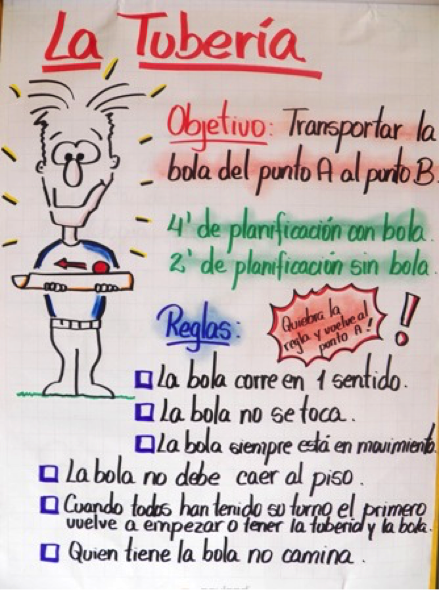 La Tubería
Objetivo: Transportar la
bola del punto A al punto B.
4' de planificación con bola.
2' de planificación sin bola.
Reglas:
Quiebra la
regla y vuelve al
punto A!
!
La bola corre en 1 sentido.
La bola no se toca.
La bola siempre está en movimiento.
La bola no debe caer al piso.
Cuando todos han tenido su turno el primero
vuelve a empezar o tener la tubería y la bola.
Quien tiene la bola no camina.